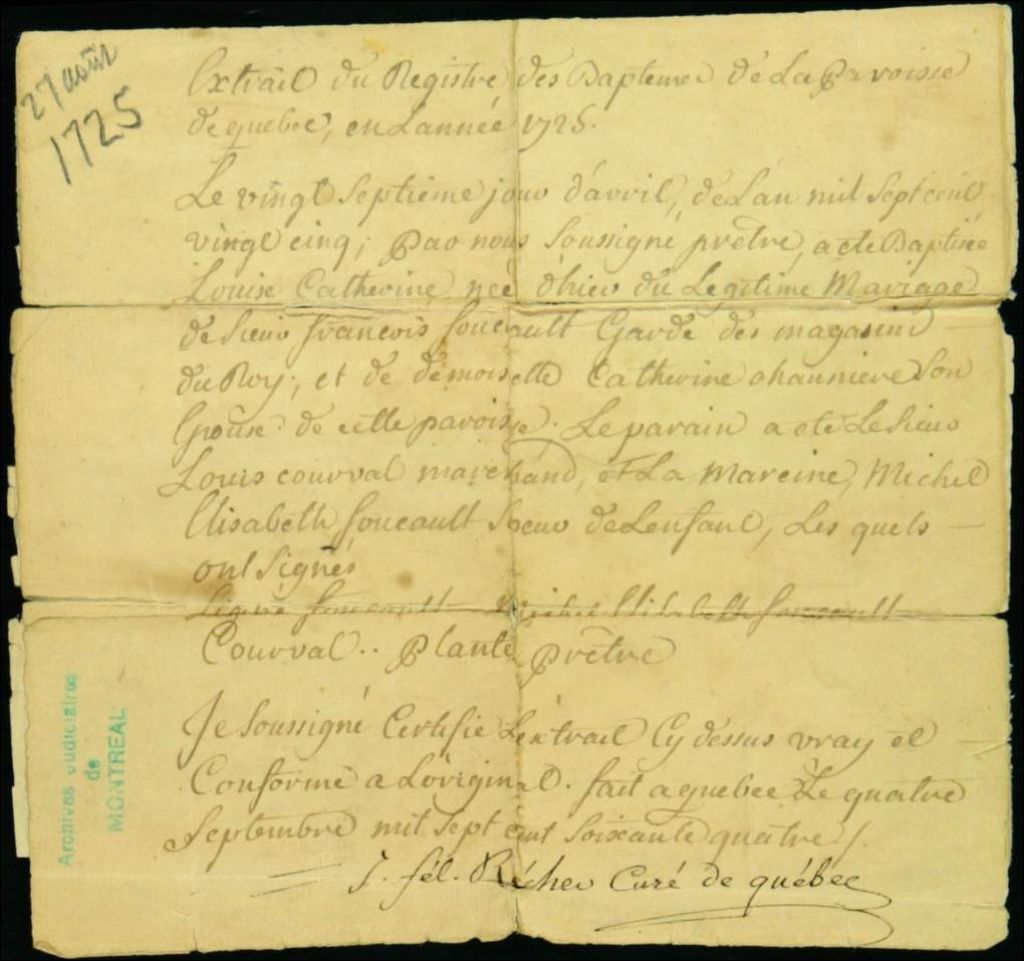 27 août
1725
Extrait du Registre des Baptemes de La paroisse
de quebec, en Lannée 1725.
Le vingt septieme jour d'avril, de Lan mil sept cent
vingt cinq, par nous soussigné prêtre, a ete Baptisée
Louise Catherine née d'hier du Legitime Mariage
de sieur francois foucault Garde des magasins
du Roy; et de demoiselle Catherine chauniere Son
Epouse de cette paroisse. Le parain a ete Le sieur
Louis courval marchand, et La Mareine, Michel
Elisabeth foucault Soeur de Lenfant, Les quels
ont signés
Signé foucault Michel Elisabeth foucault
Courval.. plante prêtre
Je Soussigné Certifie L'extrait Cy dessus vray et
Conforme a Loriginal. fait a quebec Le quatre
Septembre mil sept cent soixante quatre /.
J. fél. Récher Curé de québec
Archives Judiciaires
de
MONTREAL